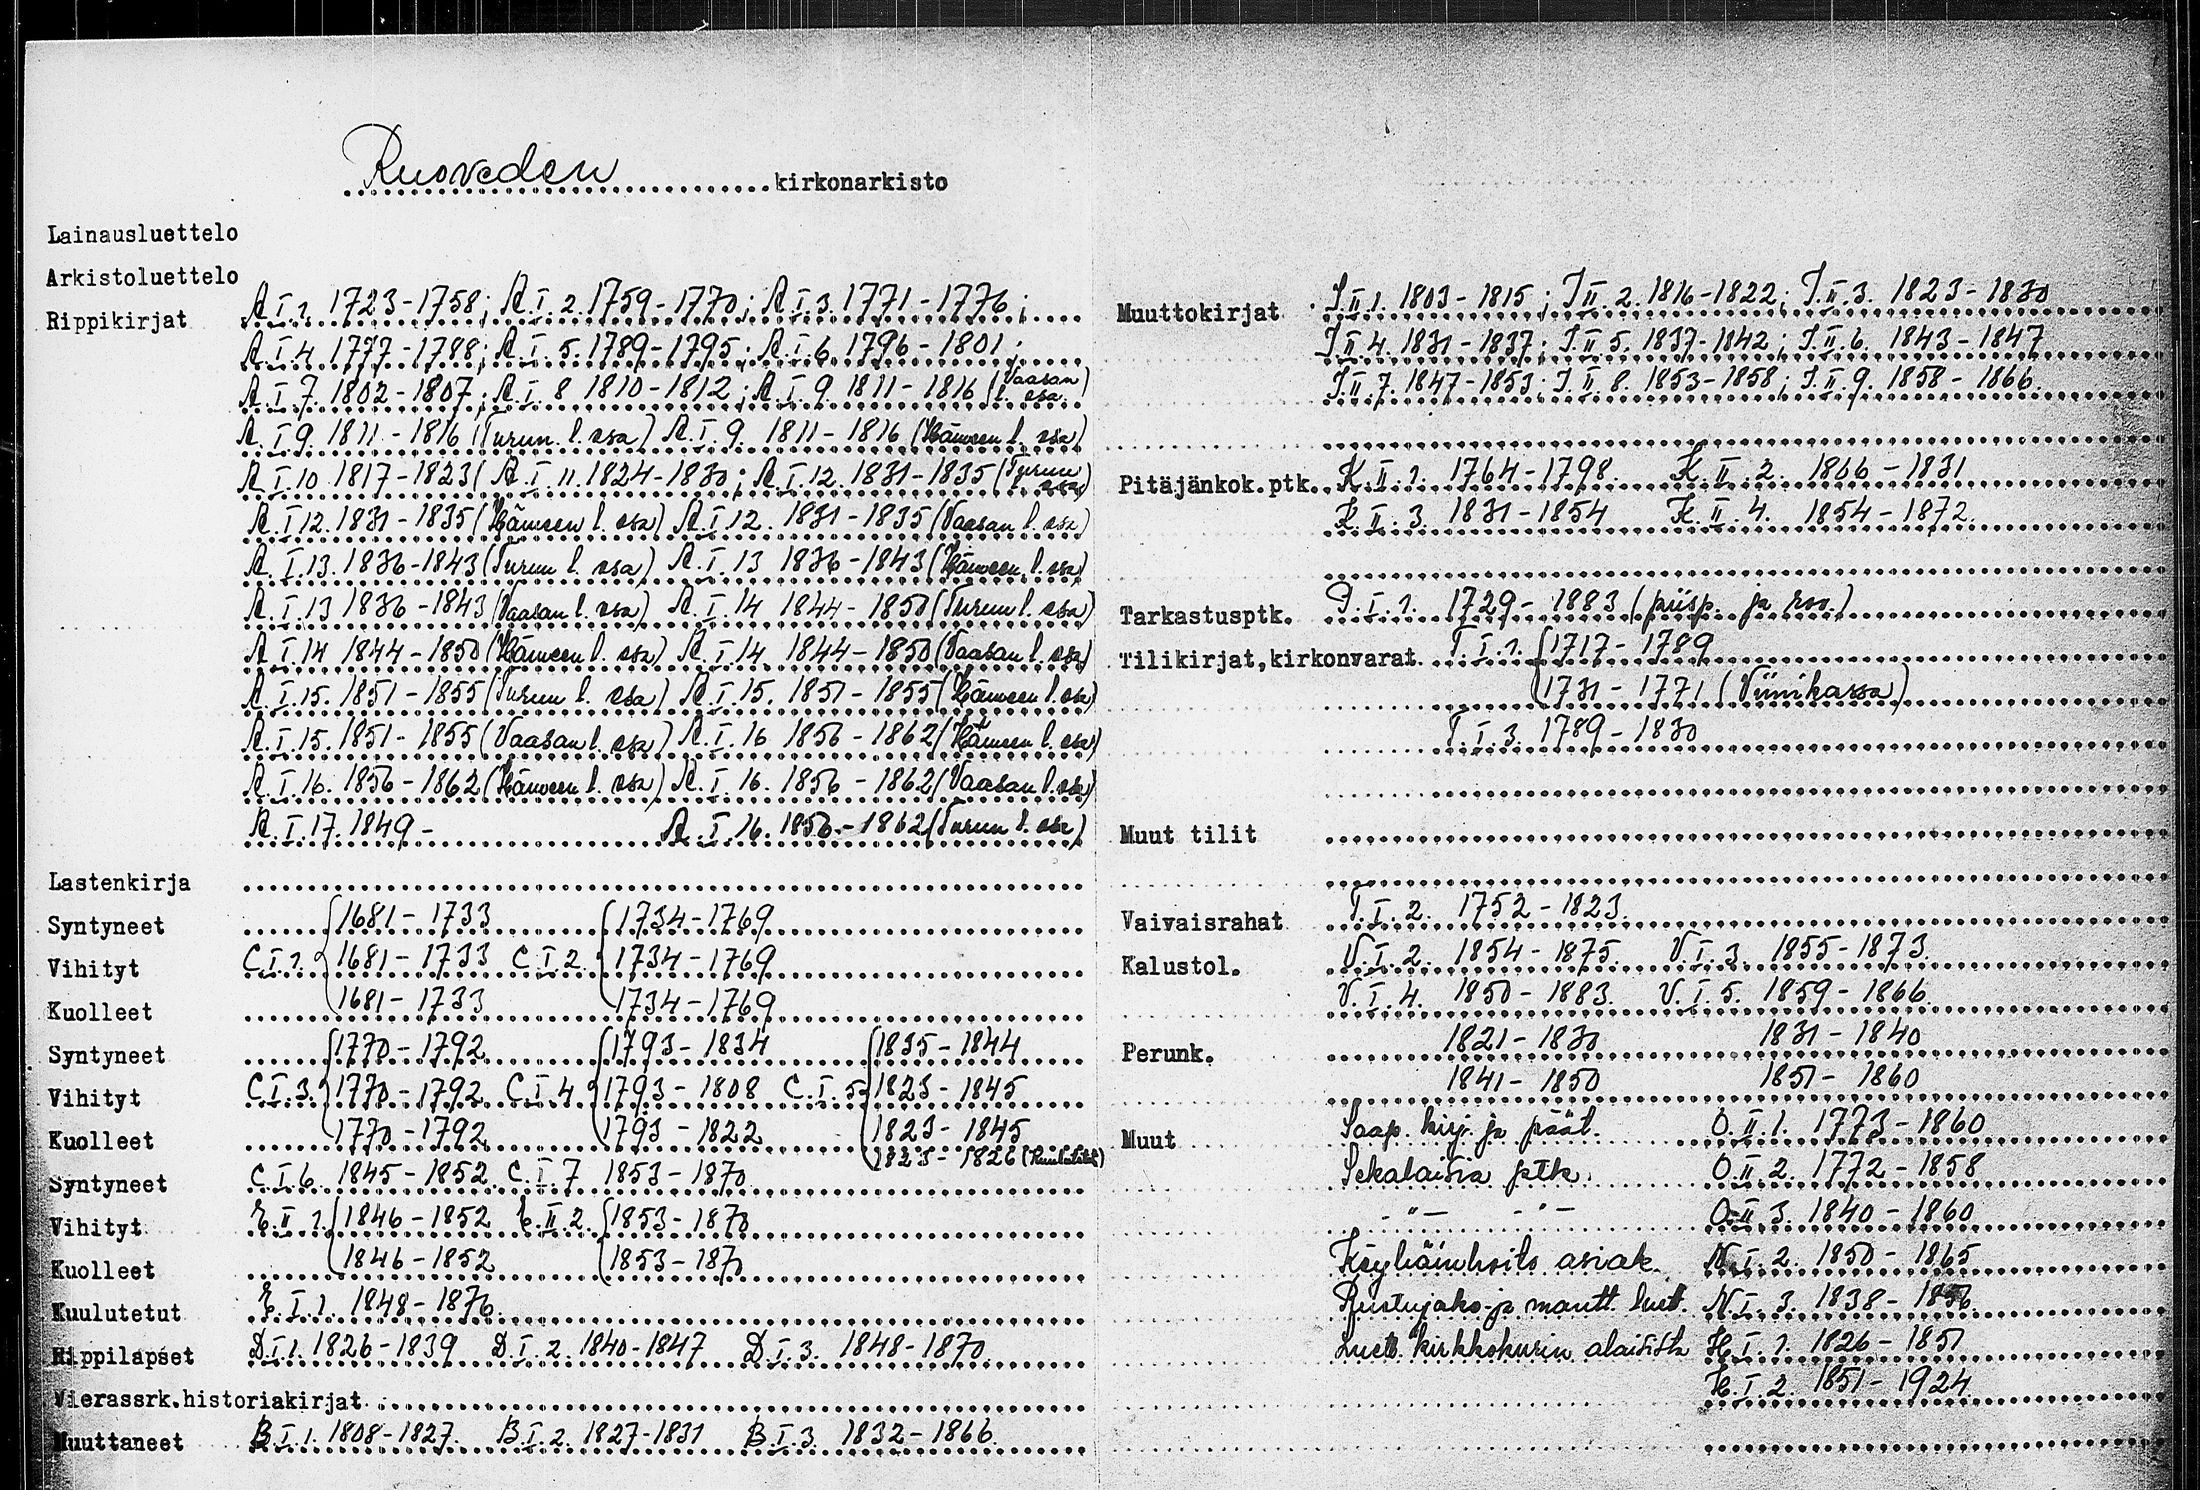 Ruoveden kirkonarkisto
Lainausluettelo
Arkistoluettelo
Rippikirjat A.I.1. 1723-1758; A.I.2. 1759-1770; A.I.3. 1771-1776;
A.I.4. 1777-1788; A.I.5. 1789-1795; A.I.6. 1796-1801;
A.I.7. 1802-1807; A.I.8 1810-1812; A.I.9. 1811-1816 (Vaasan l. osa)
A.I.9. 1811-1816 (Turun l. osa) A.I.9. 1811-1816 (Hämeen l. osa)
A.I.10 1817-1823( A.I.11. 1824-1830; A.I.12. 1831-1835 (Turun osa)
A.I.12. 1831-1835 (Hämeen l. osa) A.I.12. 1831-1835 (Vaasan l. osa)
A.I.13. 1836-1843 (Turun l. osa) A.I.13 1836-1843 (Hämeen l. osa)
A.I.13 1836-1843 (Vaasan l. osa) A.I.14 1844-1850 (Turun l. osa)
A.I.14 1844-1850 (Hämeen l. osa) A.I.14 1844-1850 (Vaasan l. osa)
A.I.15. 1851-1855 (Turun l. osa) A.I.15. 1851-1855 (Hämeen l. osa)
A.I.15. 1851-1855 (Vaasan l. osa) A.I.16 1856-1862 (Hämeen l. osa)
A.I.16. 1856-1862 (Hämeen l. osa) A.I.16. 1856-1862 (Vaasan l. osa)
A.I.17. 1849- A.I.16. 1856-1862 (Turun l. osa)
Lastenkirja
Syntyneet 1681-1733 1734-1769
Vihityt C.I.1. 1681-1733 C.I.2. 1734-1769
Kuolleet 1681-1733 1734-1769
Syntyneet 1770-1792 1793-1834 1835-1844
Vihityt C.I.3. 1770-1792 C.I.4. 1793-1808 C.I.5. 1823-1845
Kuolleet 1770-1792 1793-1822 1823-1845
1823-1826 (Kuulutetut)
Syntyneet C.I.6. 1845-1852. C.I.7 1853-1870
Vihityt E.II.1. 1846-1852 E.II.2. 1853-1870
Kuolleet 1846-1852 1853-1870
Kuulutetut E.I.1. 1848-1876.
Rippilapset D.I.1. 1826-1839 D.I.2. 1840-1847 D.I.3. 1848-1870
Vierassrk.historiakirjat
Muuttaneet B.I.1. 1808-1827. B.I.2. 1827-1831 B.I.3. 1832-1866.
Muuttokirjat J.II.1. 1803-1815; J.II.2. 1816-1822; J.II.3. 1823-1830
J.II.4. 1831-1837; J.II.5. 1837-1842; J.II.6. 1843-1847
J.II.7. 1847-1853; J.II.8. 1853-1858; J.II.9. 1858-1866.
Pitäjänkok.ptk. K.II.1. 1764-1798. K.II.2. 1806-1831
K.II.3. 1831-1854 K.II.4. 1854-1872.
Tarkastusptk. P.I.1. 1729-1883 (piisp. ja rov.)
Tilikirjat,kirkonvarat T.I.1. 1717-1789
1731-1771 (Viinikassa)
T.I.3. 1789-1830
Muut tilit
Vaivaisrahat T.I.2. 1752-1823.
Kalustol. V.I.2. 1854-1875. V.I.3. 1855-1873.
V.I.4. 1850-1883. V.I.5. 1859-1866.
Perunk. 1821-1830 1831-1840
1841-1850 1851-1860
Muut Saap. kirj. ja päät. O.II.1. 1773-1860
Sekalaisia ptk. O.II.2. 1772-1858
-"- -"- O.II.3. 1840-1860
Köyhäinhoito asiak. N.I.2. 1850-1865
Ruotujako- ja mantt. luet. N.I.3. 1838-
Luett. kirkkokurin alaisista H.I.1. 1826-1851
H.I.2. 1851-1924